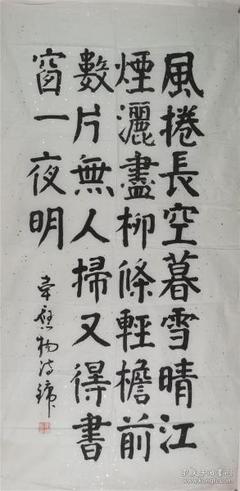 風捲長空暮雪晴江
煙灑盡柳條輕檐前
數片無人掃又得書
窗一夜明